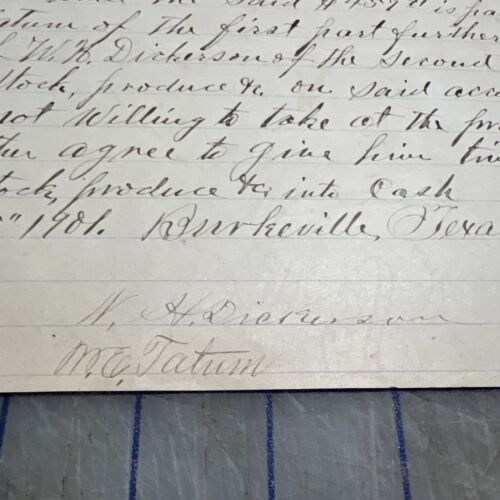 said $457
atum of the first part further
W. H. Dickerson of the second
stock, produce &c. on said acco
not Willing to take at the pr
ther agree to give him ti
tock, produce &c into Cash
" 1901. Burkeville, Texa
W. H. Dickerson
W. E. Tatum